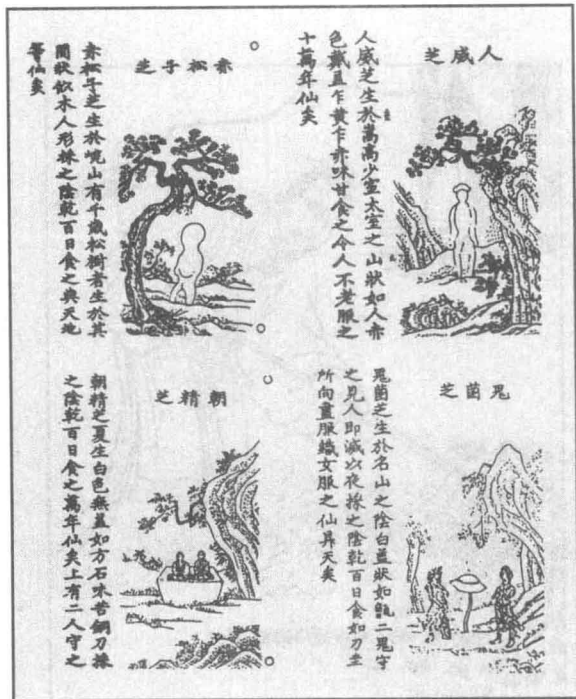 人威芝
人威芝生於萬高少室太室之山狀如人赤
色戴盖乍黄乍赤味甘食之令人不老服之
十萬年仙矣
赤松子芝
赤松子芝生於峴山有千歲松樹者生於其
間狀飲木人形採之陰乾百日食之與天地
等仙矣
鬼菌芝
鬼菌芝生於名山之陰白蓋狀如甑二鬼守
之見人即滅以夜採之陰乾百日食如刀圭
所向靈服織女服之仙昇天矣
朝精芝
朝精芝夏生白色無蓋如方石味苦銅刀採
之陰乾百日食之萬年仙矣上有二人守之